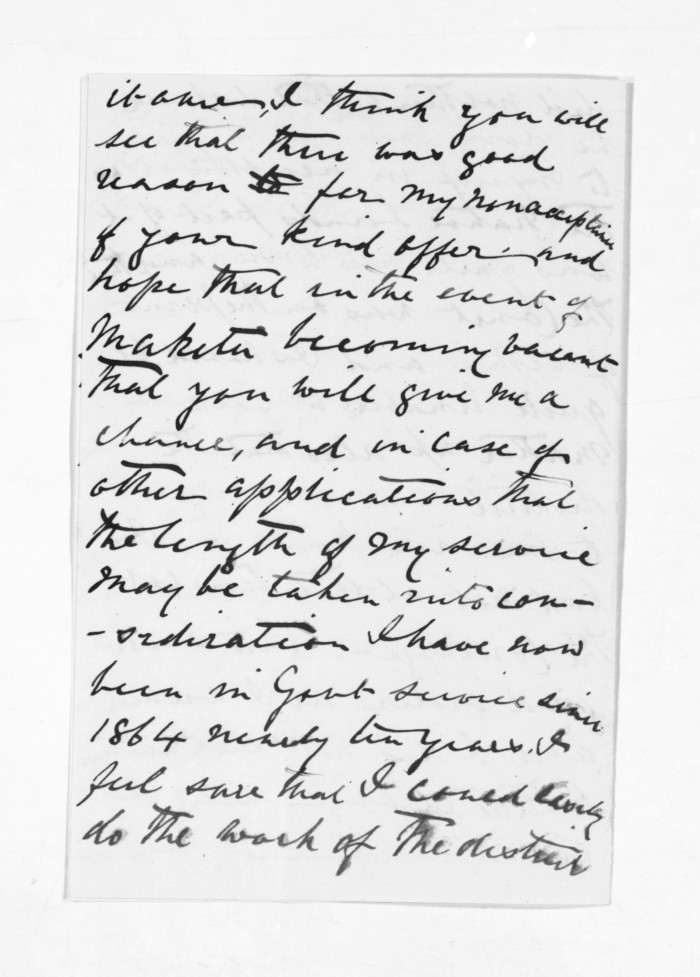 it once, I think you will
see that there was good
reason for my nonacceptance
of your kind offer. and
hope that in the event of
Maketu becoming vacant
that you will give me a
chance, and in case of
other applications that
the length of my service
may be taken into con-
-sideration I have now
been in Govt service since
1864 nearly ten years. I
feel sure that I could easily
do the work of the district